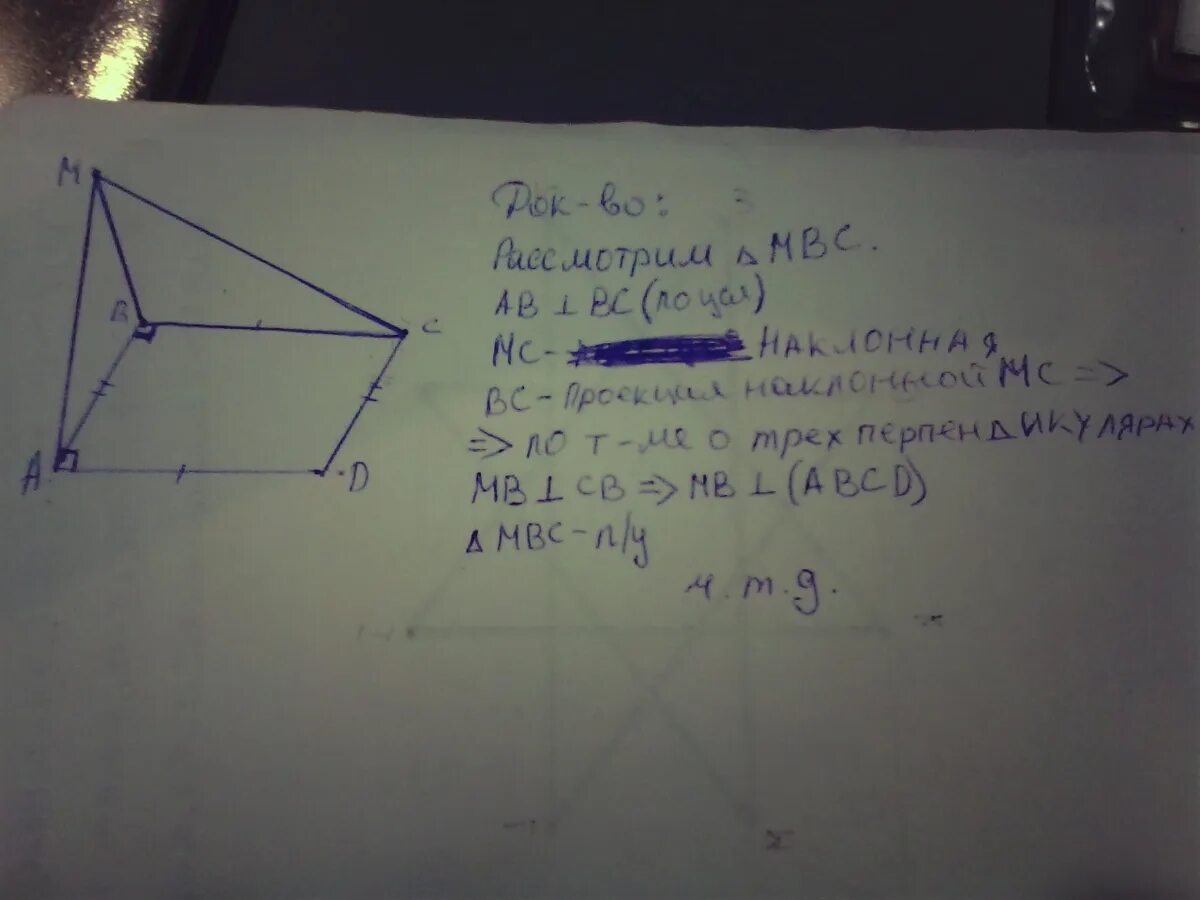 M
B
C
A
D
Док-во:
Рассмотрим △ MBC.
AB ⊥ BC (по усл)
MC - наклонная
BC - проекция наклонной MC =>
=> по т-ме о трех перпендикулярах
MB ⊥ CB => MB ⊥ (ABCD)
△ MBC - п/у
ч.т.д.